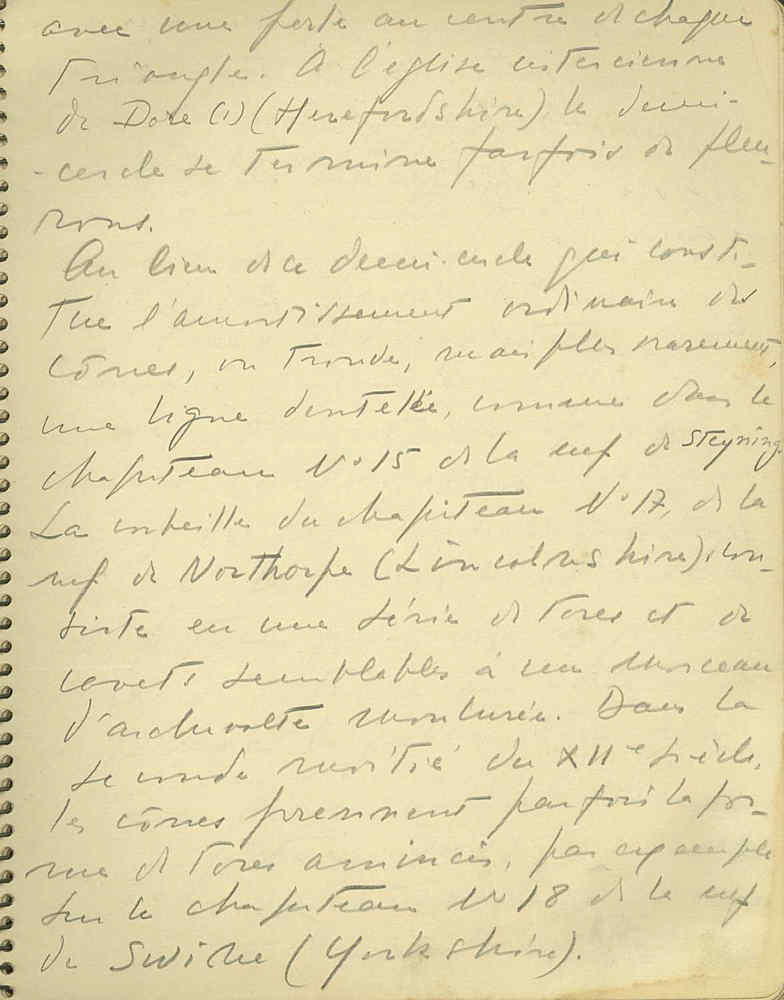 avec une perle au centre de chaque
triangle. A l'église cistercienne
de Dore (1) (Herefordshire), le demi-
-cercle se termine parfois de fleu-
rons.
Au lieu de ce demi-cercle qui consti-
tue l'amortissement ordinaire des
cônes, on trouve, mais plus rarement,
une ligne dentelée, comme dans le
chapiteau N° 15 de la nef de Steyning.
La corbeille du chapiteau N° 17, de la
nef de Northorpe (Lincolnshire), con-
siste en une série de tores et de
cavets semblables à un morceau
d'archivolte moulurée. Dans la
seconde moitié du XIIe siècle,
les cônes prennent parfois la for-
me de tores amincis, par exemple
sur le chapiteau N° 18 de la nef
de Swine (Yorkshire).